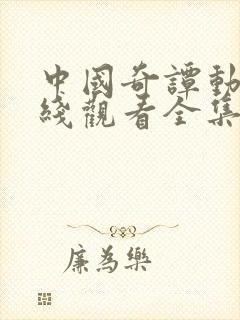 中國奇譚動
綫觀看全集
廉為樂